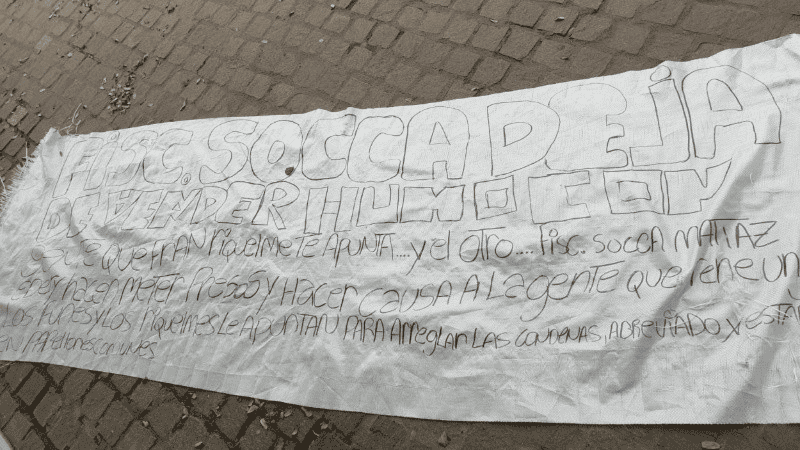 FISC. SOCCA DEJA
DE VENDER HUMO CON
QUE FRAN RIQUELME TE APUNTA.... y el otro.... Fisc. SOCCA MATIAZ
HACER METER PRESOS Y HACER CAUSA A LA gENTE que TIENE UN
LOS FUNES y LOS RIQUELMES LE APUNTAN PARA ArreglAr LAS CONDENAS, ABREVIADO y ESTAN